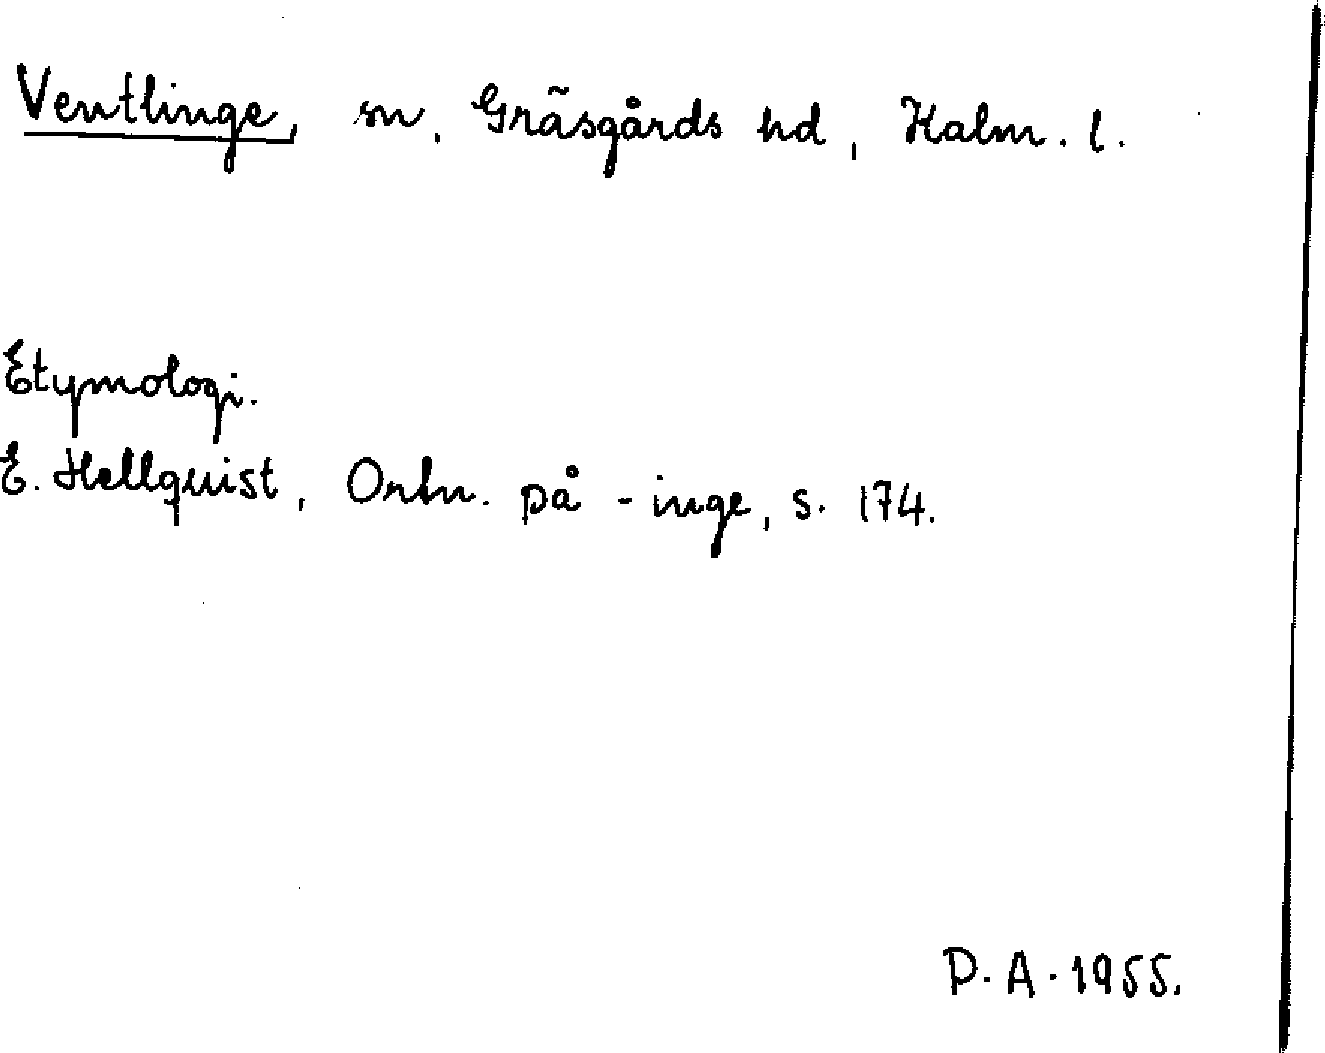 Ventlinge, sn. Gräsgårds hd, Kalm. l.
Etymologi.
E. Hellquist, Ortn. på -inge, s. 174.
D. A. 1955.